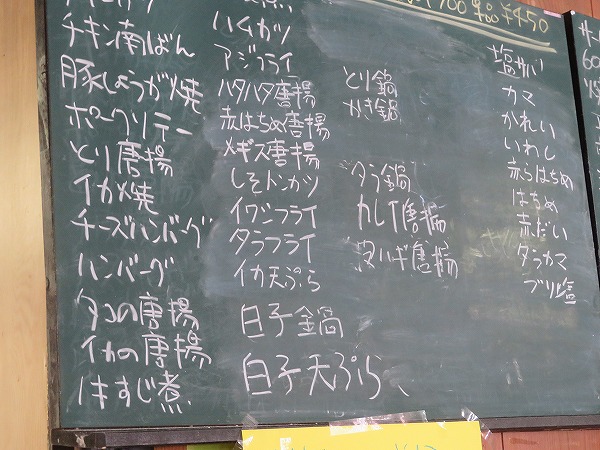 チキン南ばん
豚しょうが焼
ポークソテー
とり唐揚
イカ焼
チーズハンバーグ
ハンバーグ
タコの唐揚
イカの唐揚
牛すじ煮
ハムカツ
アジフライ
ハタハタ唐揚
赤はちめ唐揚
メギス唐揚
しそトンカツ
イワシフライ
タラフライ
イカ天ぷら
白子鍋
白子天ぷら
とり鍋
かき鍋
タラ鍋
カレイ唐揚
¥450
塩サバ
カマ
かれい
いわし
赤らはちめ
はちめ
赤だい
タラカマ
ブリ塩